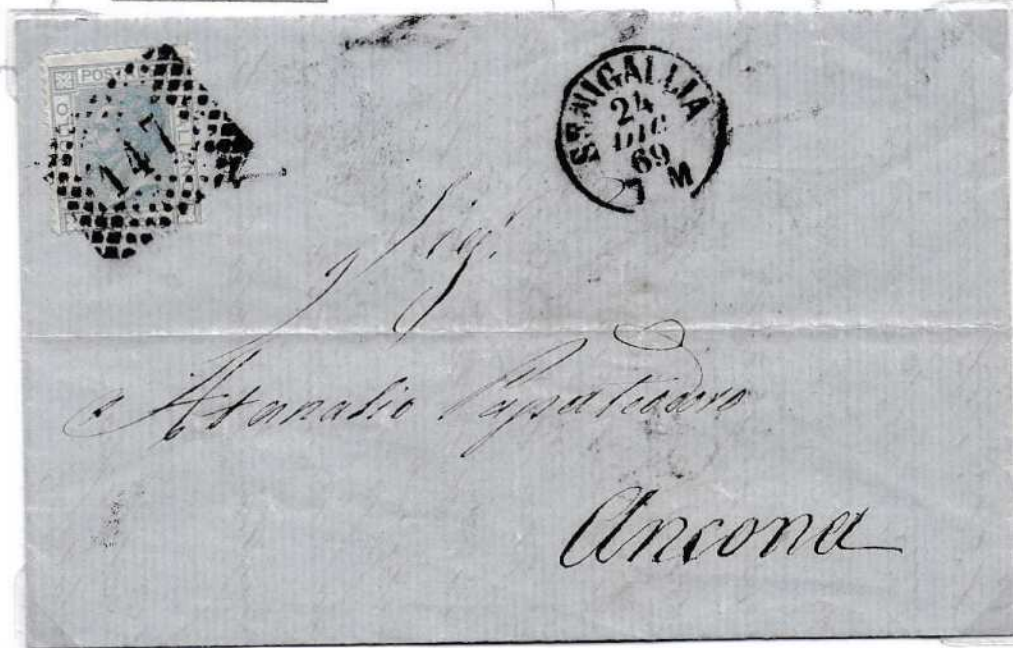 POST
147
SENIGALLIA
24
DIC
69
7 M
Sigr.
Atanasio Papateodoro
Ancona